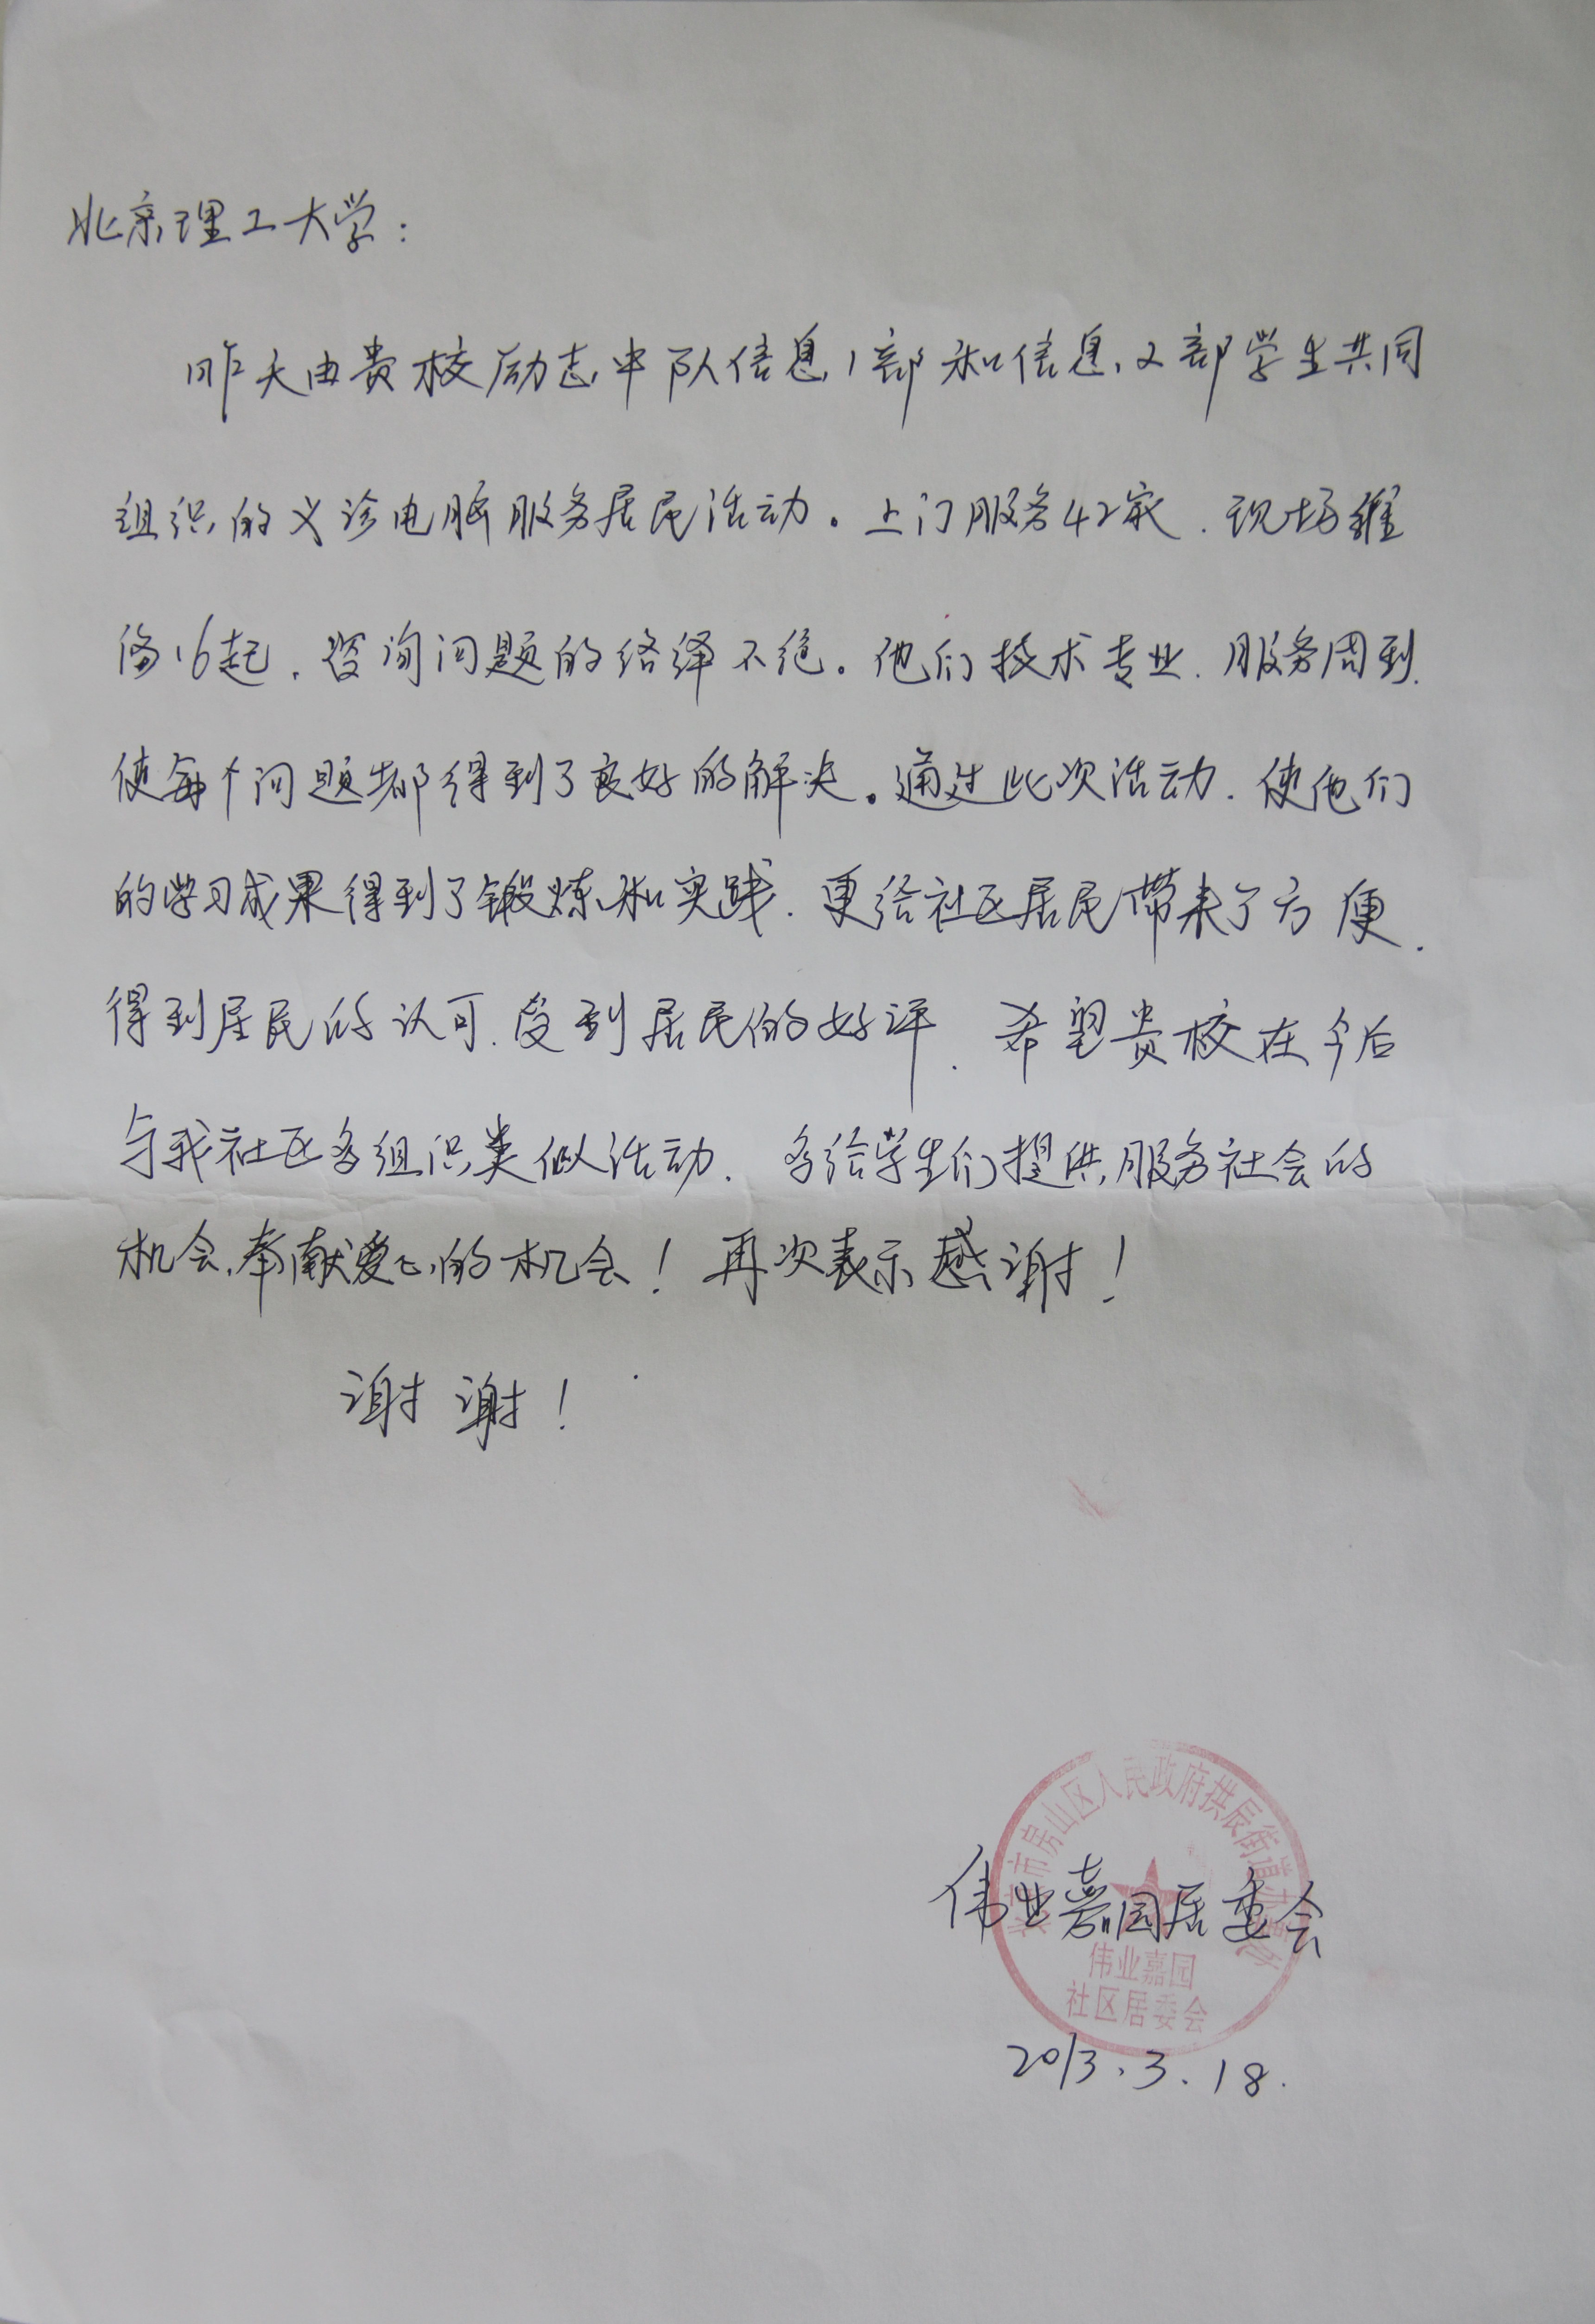 北京理工大学：
昨天由贵校励志中队信息1部和信息2部学生共同
组织的义诊电脑服务居民活动。上门服务42家，现场维
修16起，咨询问题的络绎不绝。他们技术专业，服务周到，
使每个问题都得到了良好的解决。通过此次活动，使他们
的学习成果得到了锻炼和实践，更给社区居民带来了方便，
得到居民的认可，受到居民的好评，希望贵校在今后
与我社区多组织类似活动，多给学生们提供服务社会的
机会，奉献爱心的机会！再次表示感谢！
谢谢！
北京市房山区人民政府拱辰街道办事处
伟业嘉园居委会
伟业嘉园
社区居委会
2013.3.18.